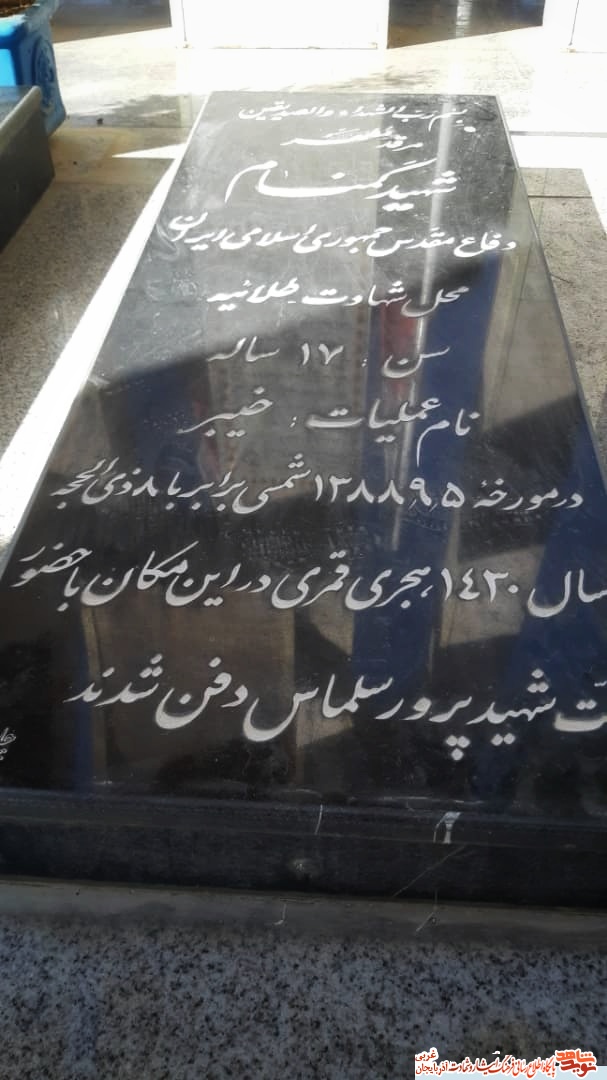 بسم رب الشهداء والصدیقین
مرقد مطهر
شهید گمنام
دفاع مقدس جمهوری اسلامی ایران
محل شهادت طلائیه
سن : ۱۷ ساله
نام عملیات : خیبر
در مورخهٔ ۱۳۸۸٫۹٫۵ شمسی برابر با ۸ ذی الحجه
سال ۱۴۳۰ هجری قمری در این مکان با حضور
ت شهید پرور سلماس دفن شدند
نوید شاهد
پایگاه اطلاع رسانی فرهنگ ایثار و شهادت آذربایجان غربی